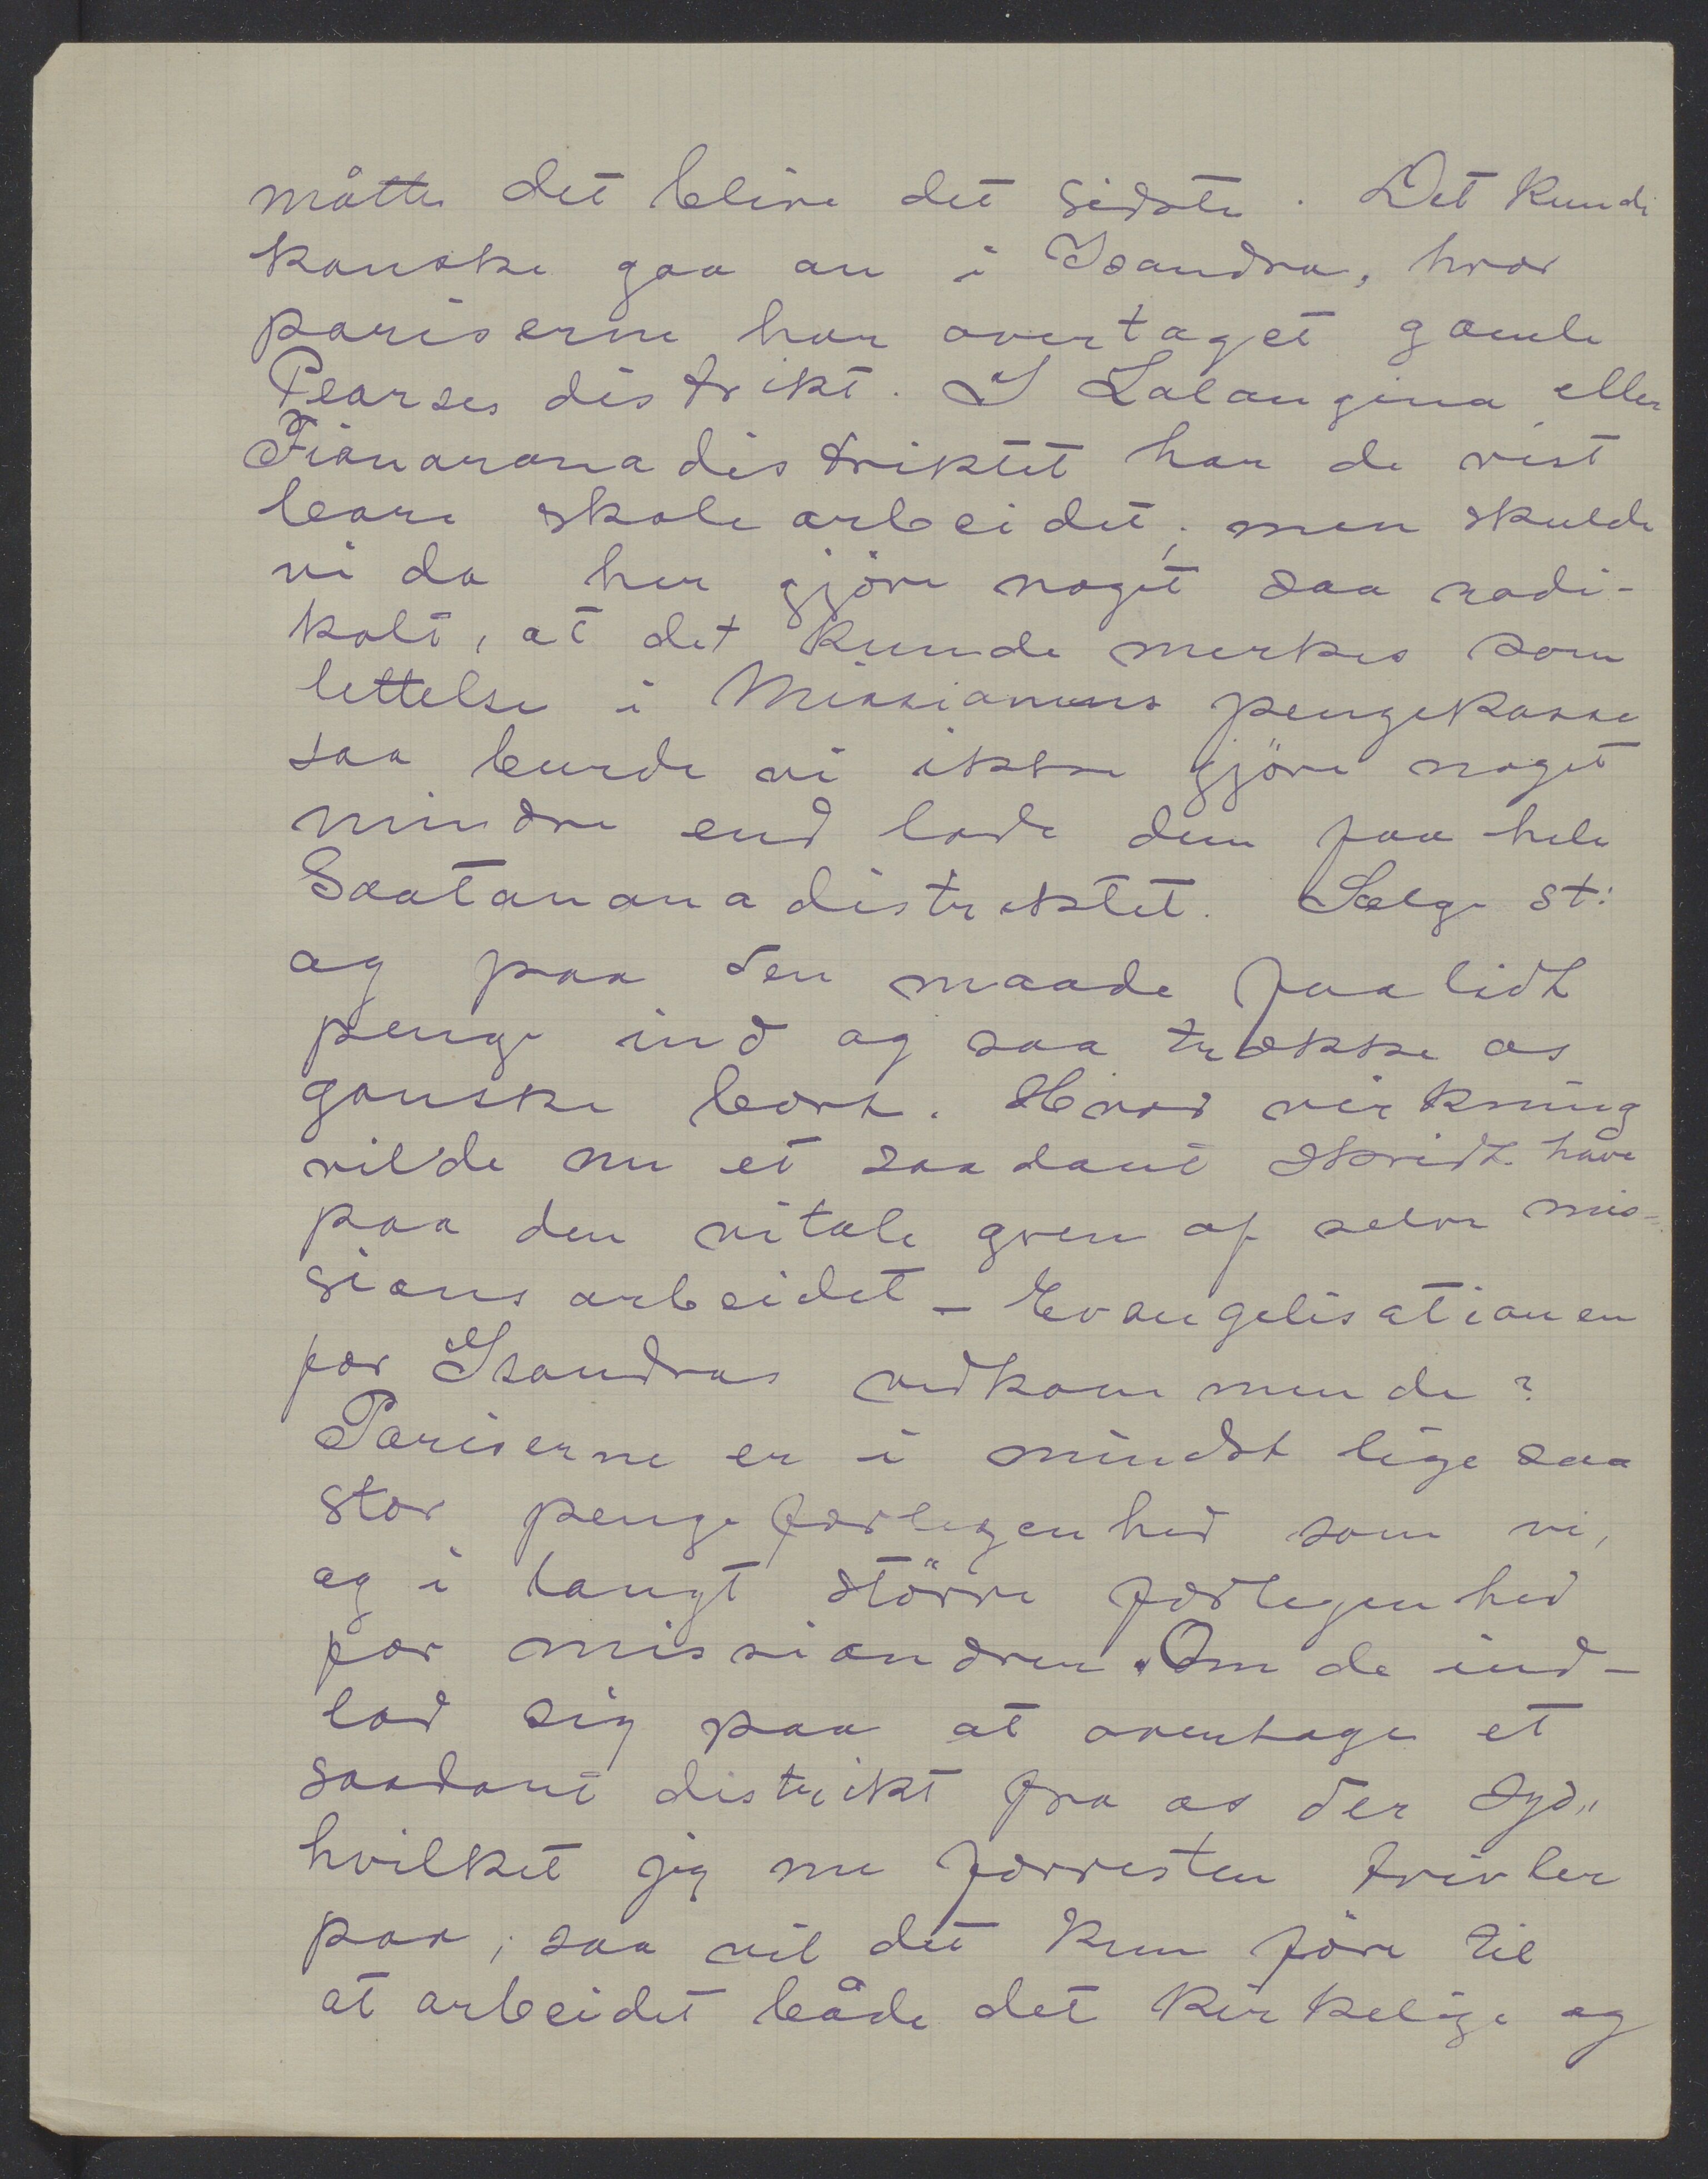 måtte det blive det sidste. Det kunde
kanske gaa an i Isandra, hvor
pariserne har overtaget gamle
Pearses distrikt. I Lalangina eller
Fianaranadistriktet har de vist
bare skolearbeidet; men skulde
vi da her gjöre noget saa radi-
kalt, at det kunde merkes som
lettelse i Missionens pengekasse
saa burde vi ikke gjöre noget
mindre end lade dem faa hele
Soatananadistriktet. Sælge st:
og paa den maade faa lidt
penge ind og saa trække os
ganske bort. Hvad virkning
vilde nu et saadant skridt have
paa den vitale gren af selve mis-
sionsarbeidet - Evangelisationen
for Isandras vedkommende?
Pariserne er i mindst lige saa
stor pengeforlegenhed som vi,
og i langt större forlegenhed
for missionærer. Om de ind-
lod sig paa at overtage et
saadant distrikt fra os der syd,,
hvilket jeg nu forresten tvivler
paa, saa vil det kun före til
at arbeidet både det kirkelige og